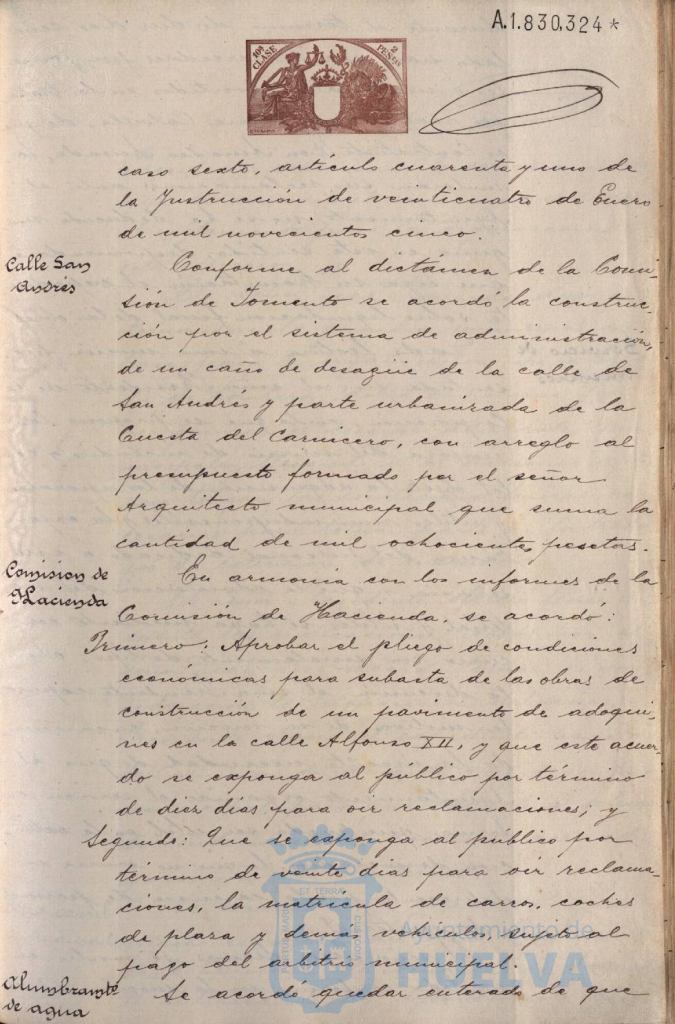 A.1.830,324*
10ª CLASE
2 PESETAS
caso sexto, artículo cuarenta y uno de
la Instrucción de veinticuatro de Enero
de mil novecientos cinco.
Calle San
Andrés
Conforme al dictámen de la Comi-
sión de Fomento se acordó la construc-
ción por el sistema de administración,
de un caño de desagüe de la calle de
San Andrés y parte urbanizada de la
Cuesta del Carnicero, con arreglo al
presupuesto formado por el señor
Arquitecto municipal que suma la
cantidad de mil ochocientas pesetas.
Comision de
Hacienda
En armonía con los informes de la
Comisión de Hacienda, se acordó:
Primero: Aprobar el pliego de condiciones
económicas para subasta de las obras de
construcción de un pavimento de adoqui-
nes en la calle Alfonso XII, y que este acuer-
do se exponga al público por término
de diez días para oir reclamaciones; y
Segundo: Que se exponga al público por
término de veinte dias para oir reclama-
ciones, la matricula de carros, coches
de plaza y demás vehículos, sujeto al
pago del arbitrio municipal.
Alumbramto
de agua
Se acordó quedar enterado de que
Ayuntamiento de
HUELVA